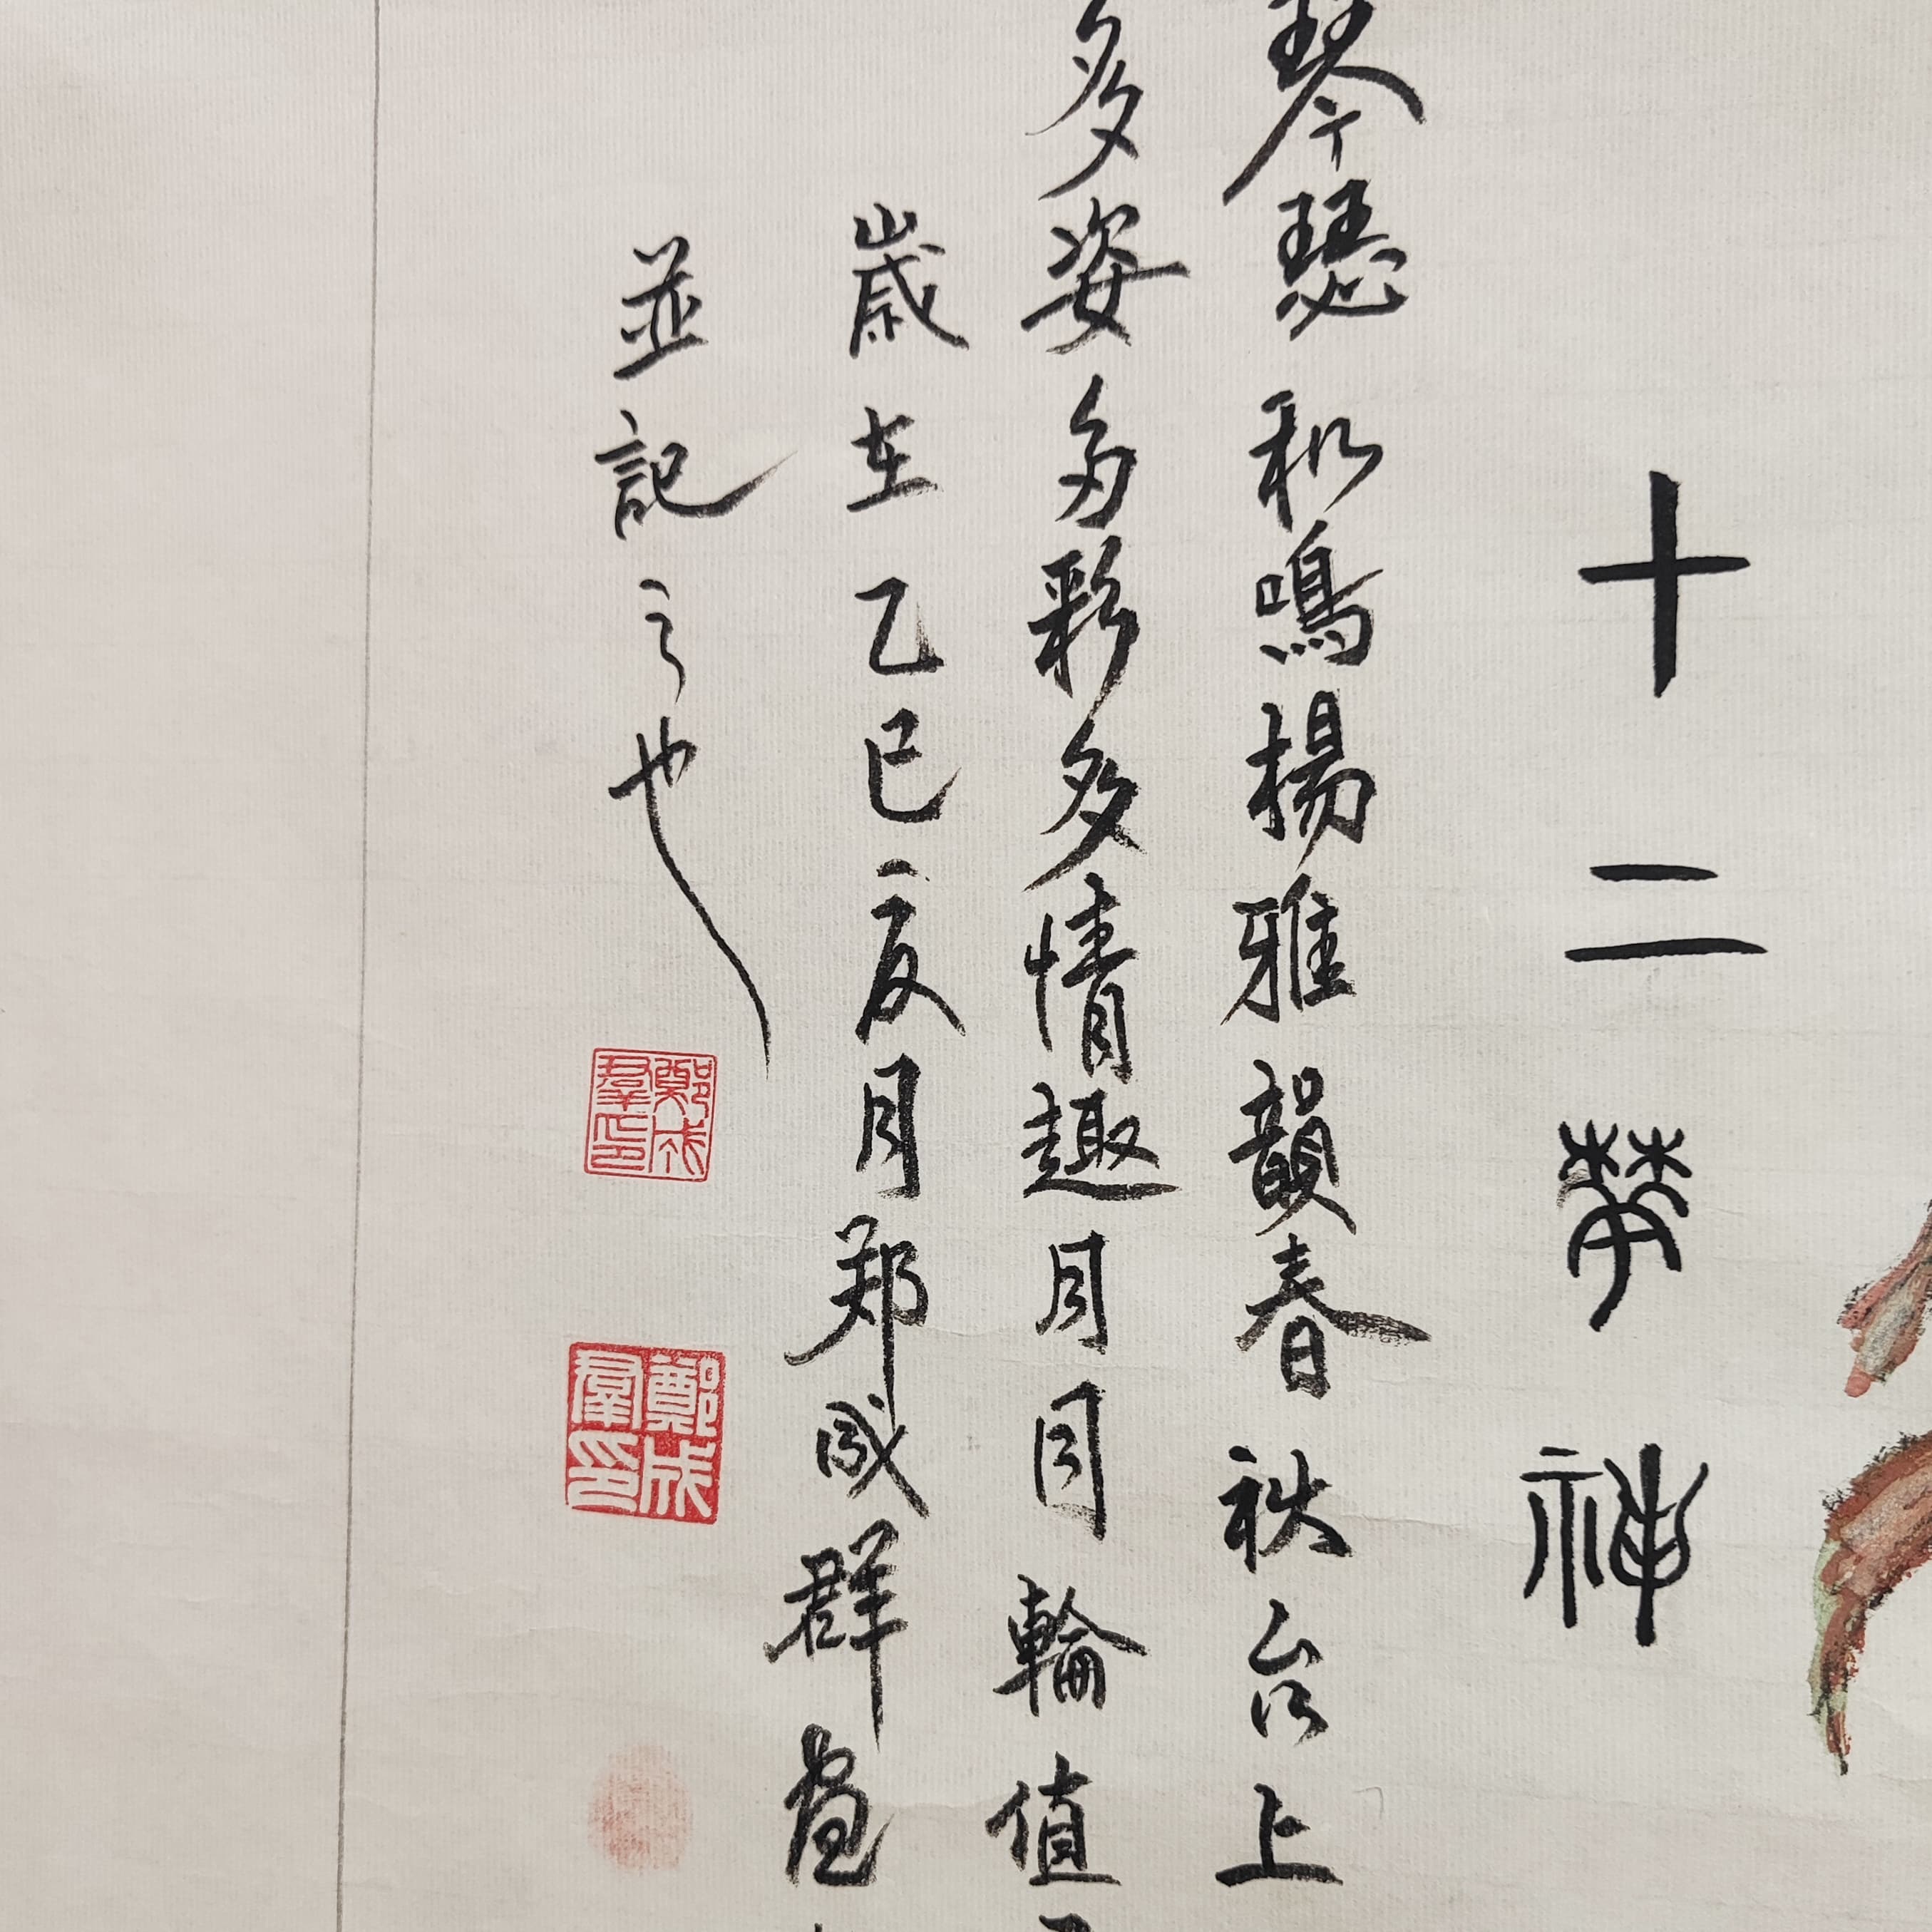 十二華神
琴瑟和鳴揚雅韻春秋台上
多姿多彩多情趣月月輪值
歲在乙巳夏月郑成群畫
並記之也
鄭成羣印
鄭成羣印